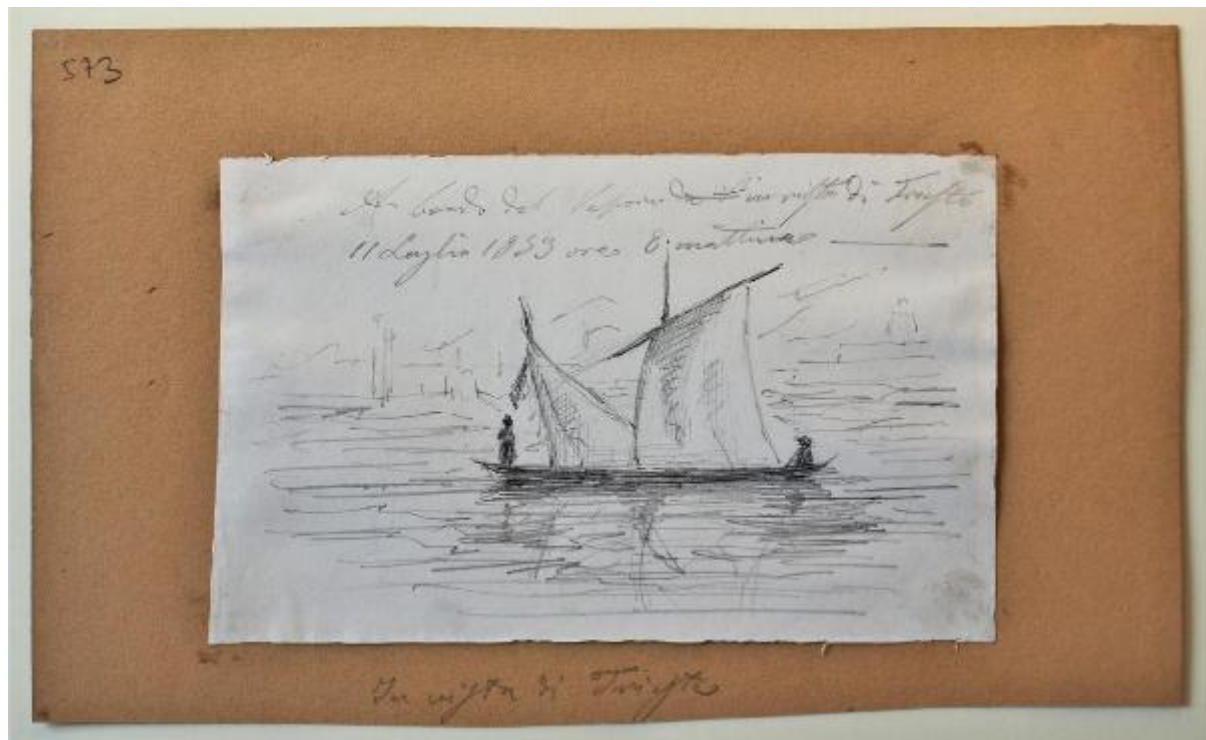 573
A bordo del Vapore in vista di Trieste
11 Luglio 1853 ore 8 mattina
In vista di Trieste